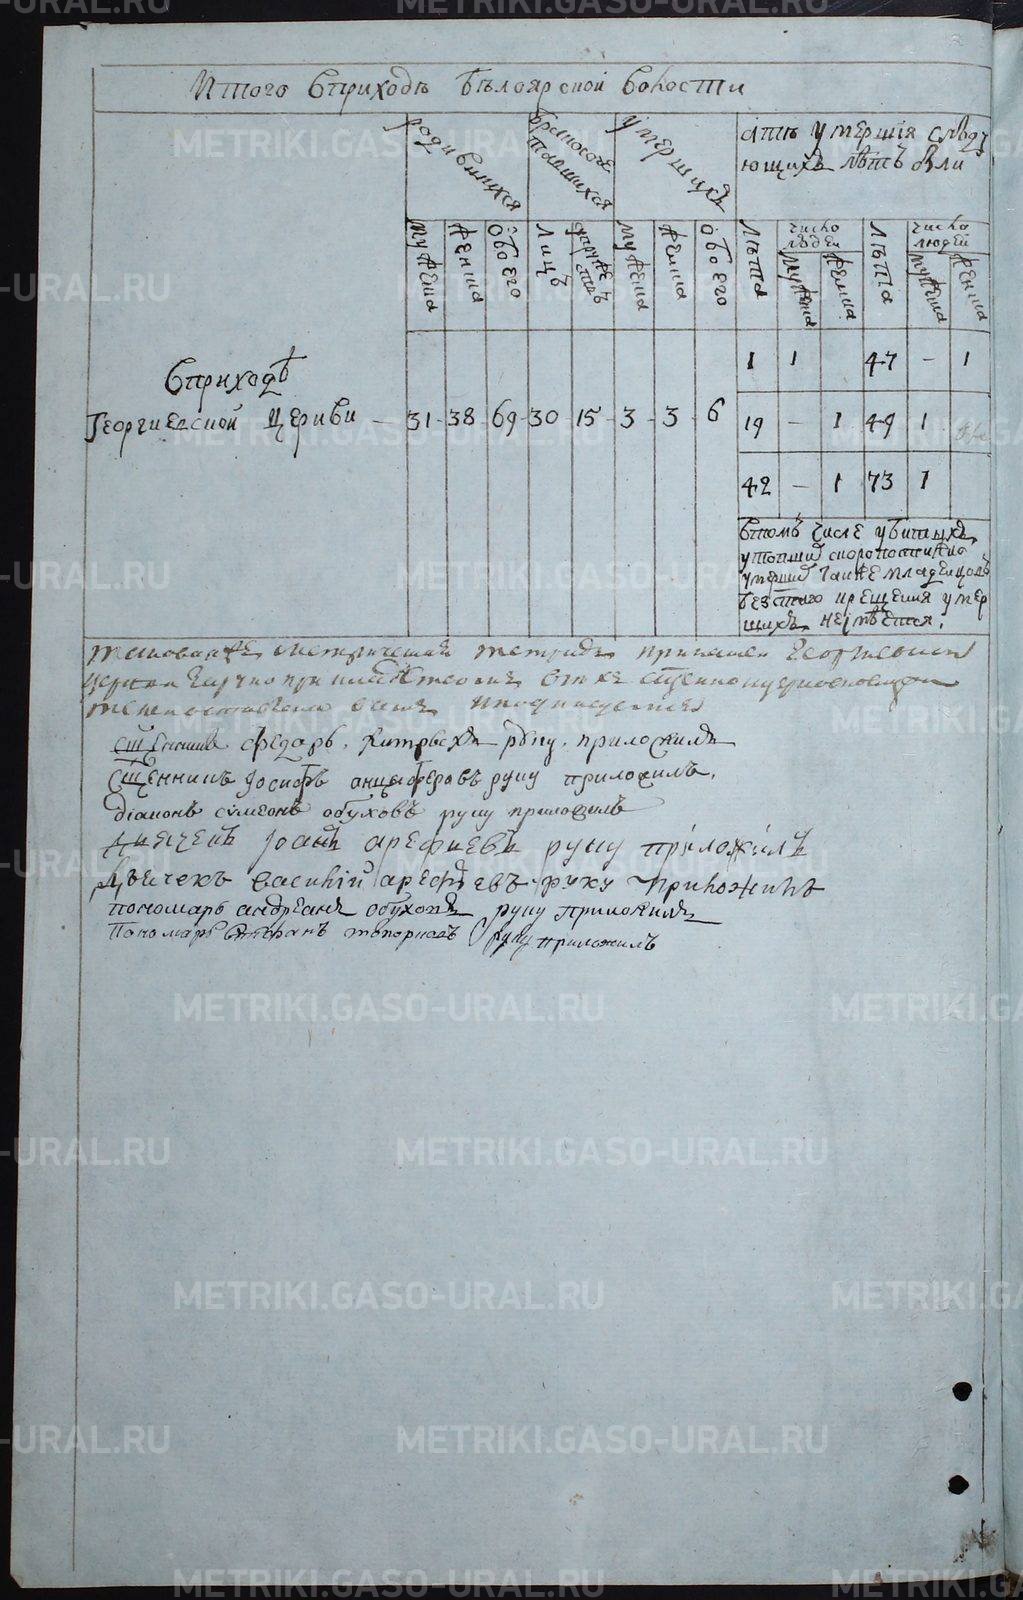 Итого вприходѣ бѣлоярской волости
родившихся
бракосоче
тавшихся
умершихъ
А тѣ умершія слѣду
ющихъ лѣтъ были
мужеска
женска
обоего
лицъ
супружествъ
мужеска
женска
обоего
лѣта
число людей
мужеска
женска
лѣта
число людей
мужеска
женска
вприходѣ
Георгиевской церкви — 31 - 38 - 69 - 30 - 15 - 3 - 3 - 6
1 1 47 - 1
19 - 1 49 1
42 - 1 73 1
втомъ числе убитыхъ
утопших скоропостижно
умерших также младенцовъ
безстаго крещения умер
шихъ неимѣется.
такова метрическая тетрадь
церкви
сщенникъ федоръ руку приложилъ
Сщенникъ Іосифъ анцыферовъ руку приложилъ.
діаконъ сѵмеонъ обуховъ руку приложилъ
дьячекъ Іоаннъ арефиевъ руку приложилъ
дьячекъ василий арефьевъ руку приложилъ
пономарь андреанъ обуховъ руку приложилъ
Пономарь топорковъ руку приложилъ
METRIKI.GASO-URAL.RU